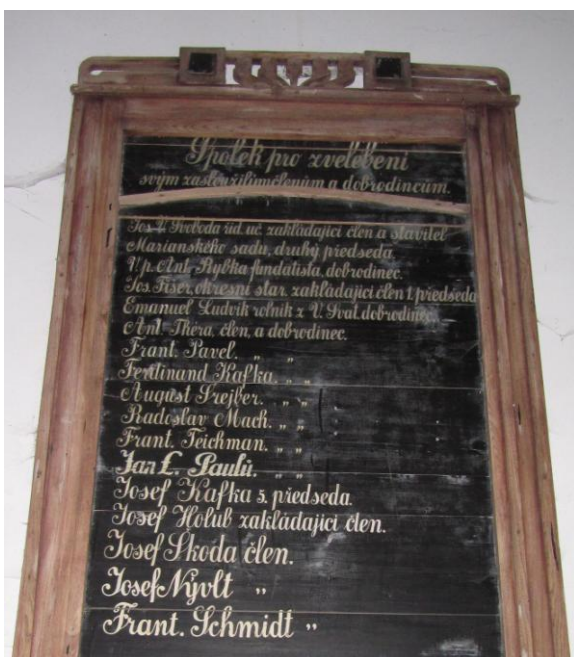 Spolek pro zvelebení
svým zasloužilým členům a dobrodincům.
Jos. V. Svoboda říd. uč. zakládající člen a stavitel
Marianského sadu, druhý předseda.
V. p. Ant. Rybka fundatista, dobrodinec.
Jos. Fišer, okresní star. zakládající člen 1. předseda
Emanuel Ludvík rolník z V. Svat. dobrodinec.
Ant. Thera, člen, a dobrodinec.
Frant. Pavel. „ „
Ferdinand Kafka. „ „
August Šrejber. „ „
Radoslav Mach. „ „
Frant. Teichman. „ „
Jan L. Paulů. „ „
Josef Kafka 5. předseda.
Josef Holub zakládající člen.
Josef Škoda člen.
Josef Nývlt „
Frant. Schmidt „